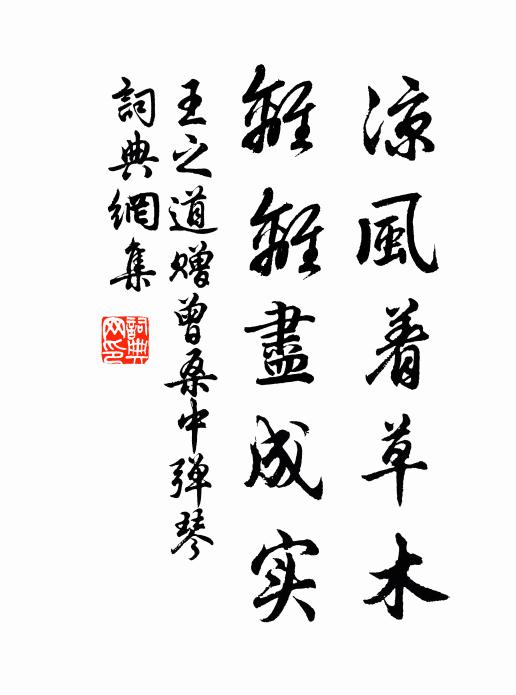 涼風着草木
離離盡成实
王之道赠曾桑中弹琴
詞典網集
詞典網印